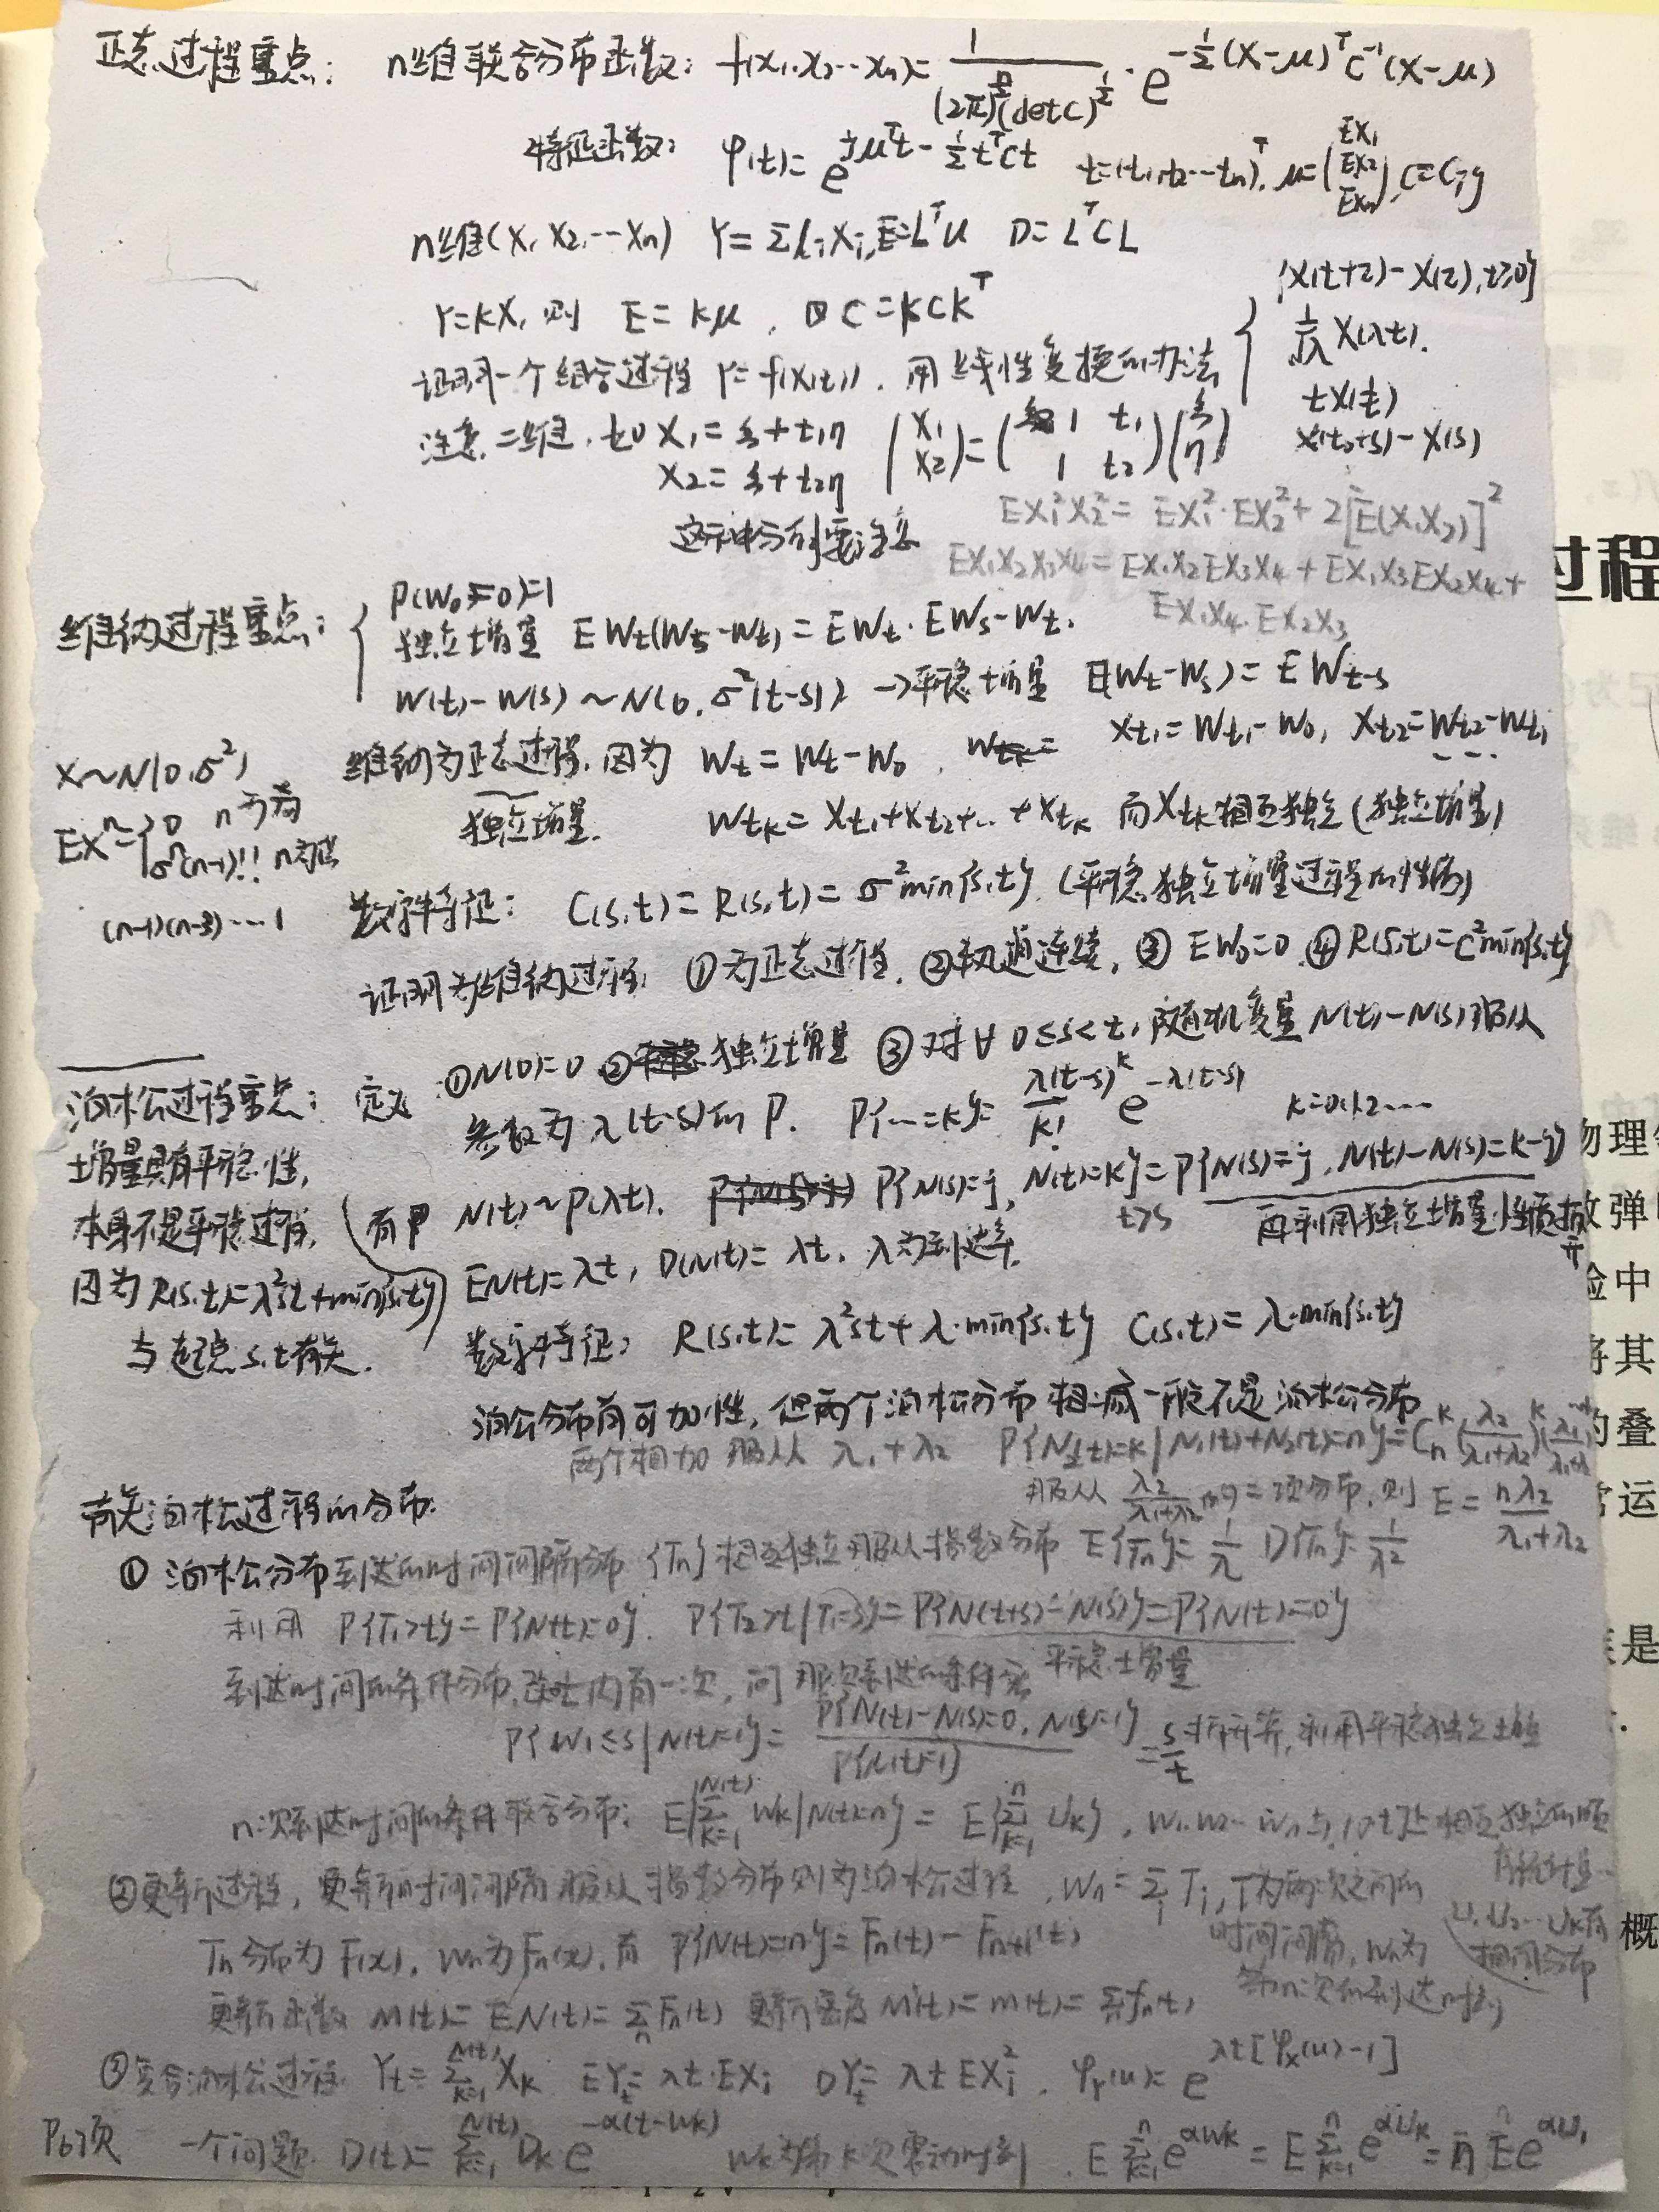 正态过程重点: n维联合分布函数: f(x₁.x₂…xₙ)= 1/((2π)^{n/2}(detC)^{1/2}) · e^{-½(X-μ)ᵀC⁻¹(X-μ)}
特征函数: φ(t)= e^{jμᵀt - ½tᵀCt} t=(t₁,t₂…tₙ)ᵀ. μ=(EX₁ EX₂ EXₙ), C=Cij
n维(X₁ X₂,…Xₙ) Y= ΣliXi, E=Lᵀu D= LᵀCL
Y=KX, 则 E= Kμ, C=KCKᵀ
证明一个组合过程 Y= f(X(t)). 用线性变换的办法 { X(t+τ)-X(τ), t≥0}
1/√λ X(λt).
tX(1/t)
X(t₀+s)-X(s)
注意.二维.如 X₁= ξ+t₁η (X₁ X₂)=(1 t₁ 1 t₂)(ξ η)
X₂= ξ+t₂η
这种分布要注意
EX₁²X₂²= EX₁²·EX₂²+2[E(X₁X₂)]²
EX₁X₂X₃X₄= EX₁X₂EX₃X₄+EX₁X₃EX₂X₄+
EX₁X₄.EX₂X₃
维纳过程重点: { P(W₀=0)=1
独立增量 EWt(Ws-Wt)= EWt·EWs-Wt.
W(t)-W(s) ~N(0,σ²|t-s|) →平稳增量 E(Wt-Ws)= EWt-s
维纳为正态过程.因为 Wt= Wt-W₀, Xt₁=Wt₁-W₀, Xt₂=Wt₂-Wt₁ …
独立增量. Wtk= Xt₁+Xt₂+..+Xtk 而Xtk相互独立(独立增量)
X~N(0,σ²)
EXⁿ={0 n为奇
σⁿ(n-1)!! n为偶
(n-1)(n-3)…1
数字特征: C(s,t)= R(s,t)= σ²min{s,t}.(平稳独立增量过程的性质)
证明为维纳过程: ①为正态过程. ②轨道连续, ③ EW₀=0 ④R(s,t)=C²min{s,t}
泊松过程重点: 定义:①N(0)=0 ②独立增量 ③对∀ 0≤s<t, 随机变量 N(t)-N(s)服从
参数为λ(t-s)的P. P{…=k}= λ(t-s)^k/k! e^{-λ(t-s)} k=0,1,2…
增量具有平稳性,
本身不是平稳过程,
因为R(s,t)=λ²st+min{s,t}
与起点s,t有关.
有 N(t)~P(λt). P{N(s)=j, N(t)=k}=P{N(s)=j, N(t)-N(s)=k-j}
t>s 再利用独立增量性质拆开
EN(t)=λt, D(N(t))= λt. λ为到达率.
数字特征: R(s,t)= λ²st+λ·min{s,t} C(s,t)= λ·min{s,t}
泊松分布有可加性, 但两个泊松分布相减一般不是泊松分布
两个相加 服从 λ₁+λ₂ P{N₂(t)=k|N₁(t)+N₂(t)=n}=Cₙᵏ(λ₂/(λ₁+λ₂))ᵏ(λ₁/(λ₁+λ₂))ⁿ⁻ᵏ
服从 λ₂/(λ₁+λ₂) 的二项分布,则 E= nλ₂/(λ₁+λ₂)
有关泊松过程的分布:
① 泊松分布到达的时间间隔分布 {Tn}相互独立服从指数分布 E{Tn}=1/λ D{Tn}=1/λ²
利用 P{T₁>t}=P{N(t)=0}. P{T₂>t|T₁=s}=P{N(t+s)-N(s)}=P{N(t)=0}
平稳增量
到达时间的条件分布. 内有一次, 问那次到达的条件
P{W₁≤s|N(t)=1}= P{N(t)-N(s)=0, N(s)=1}/P{N(t)=1} = s/t 拆开算,利用平稳独立增量
n次到达时间的条件联合分布: E{Σ_{k=1}^{N(t)} Wk|N(t)=n}= E{Σ_{k=1}^{n} Uk}, W₁.W₂…Wₙ与(0 t)上相互独立的顺
序统计量
U₁.U₂…Uk有
相同分布
②更新过程, 更新的时间间隔服从指数分布则为泊松过程, Wn= ΣTi, T为两次之间的
时间间隔, Wn为
第n次的到达时刻
Tn分布为F(x), Wn为Fn(x), 有 P{N(t)=n}=Fn(t)-Fn+1(t)
更新函数 M(t)= EN(t)=ΣFn(t) 更新密度M'(t)=m(t)= Σfn(t)
③复合泊松过程. Yt= Σ_{k=1}^{N(t)} Xk EYt= λt·EXi DYt= λtEXi². φY(u)= e^{λt[φx(u)-1]}
P67页 一个问题. D(t)= Σ_{k=1}^{N(t)} Dk e^{-α(t-Wk)} Wk为第k次震动时刻. E Σ_{k=1}^{n} e^{αWk}= E Σ_{k=1}^{n} e^{αUk}= n Ee^{αU₁}
过程
物理
弹
验中
将其
的叠
常运
是
概